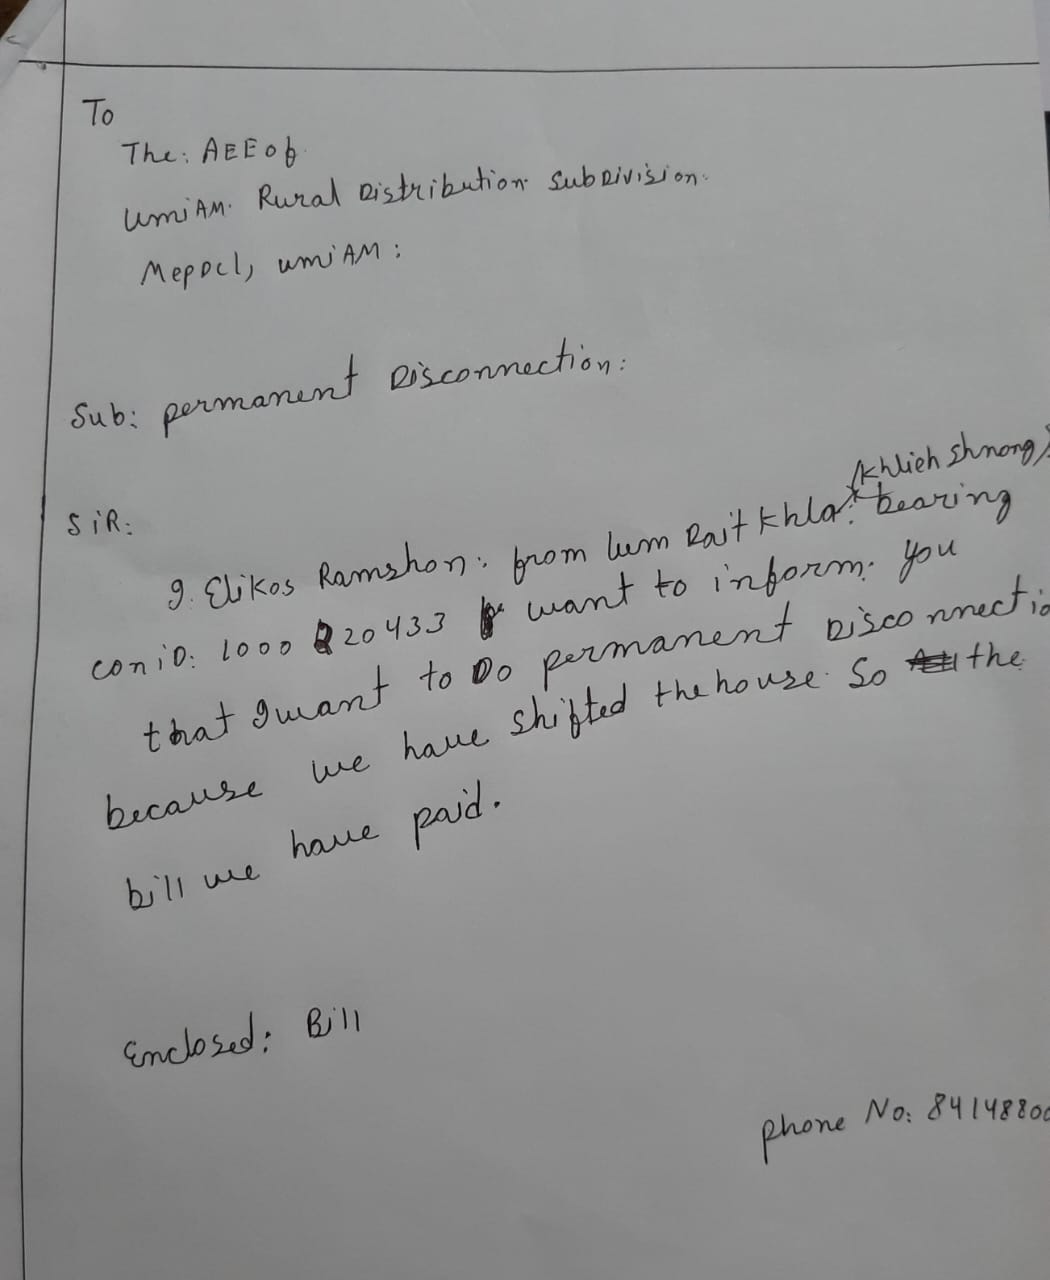 To
The: AEE of
UmiAM. Rural Distribution SubDivision.
Mepdcl, umiAM:
Sub: permanent Disconnection:
SiR:
(Khlieh Shnong)
I. Elikos Ramshon. from lum Rait Khla. bearing
con iD: 1000 20433 want to inform. you
that I want to Do permanent Disconnectio
because we have shifted the house. So the
bill we have paid.
Enclosed: Bill
phone No: 84148800